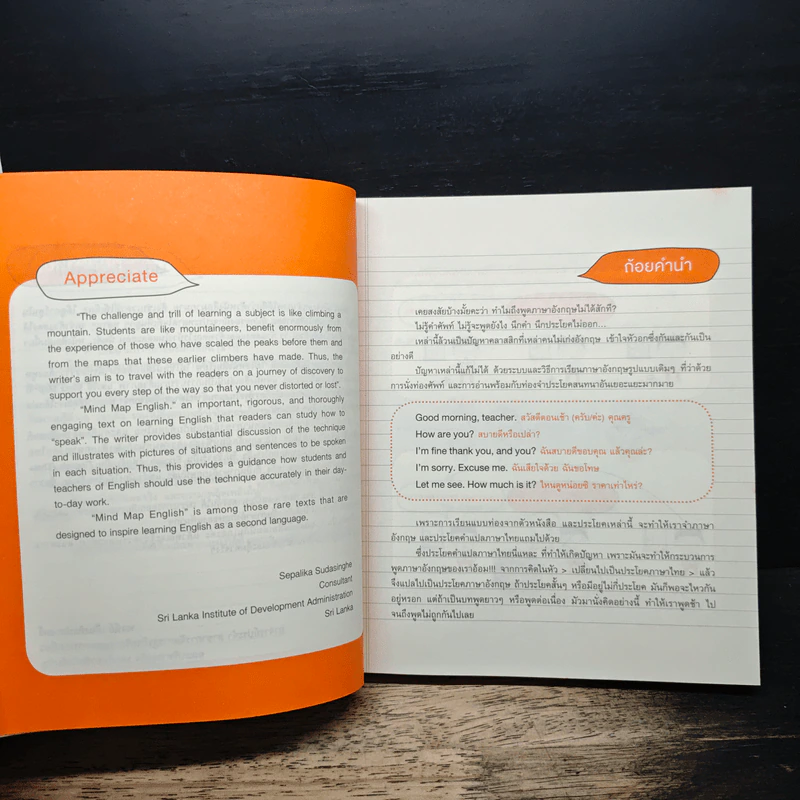 Appreciate
"The challenge and trill of learning a subject is like climbing a
mountain. Students are like mountaineers, benefit enormously from
the experience of those who have scaled the peaks before them and
from the maps that these earlier climbers have made. Thus, the
writer's aim is to travel with the readers on a journey of discovery to
support you every step of the way so that you never distorted or lost".
"Mind Map English." an important, rigorous, and thoroughly
engaging text on learning English that readers can study how to
"speak". The writer provides substantial discussion of the technique
and illustrates with pictures of situations and sentences to be spoken
in each situation. Thus, this provides a guidance how students and
teachers of English should use the technique accurately in their day-
to-day work.
"Mind Map English" is among those rare texts that are
designed to inspire learning English as a second language.
Sepalika Sudasinghe
Consultant
Sri Lanka Institute of Development Administration
Sri Lanka
ถ้อยคำนำ
เคยสงสัยบ้างมั้ยคะว่า ทำไมถึงพูดภาษาอังกฤษไม่ได้สักที?
ไม่รู้คำศัพท์ ไม่รู้จะพูดยังไง นึกคำ นึกประโยคไม่ออก...
เหล่านี้ล้วนเป็นปัญหาคลาสสิกที่เหล่าคนไม่เก่งอังกฤษ เข้าใจหัวอกซึ่งกันและกันเป็น
อย่างดี
ปัญหาเหล่านี้แก้ไม่ได้ ด้วยระบบและวิธีการเรียนภาษาอังกฤษรูปแบบเดิมๆ ที่ว่าด้วย
การนั่งท่องศัพท์ และการอ่านพร้อมกับท่องจำประโยคสนทนาอันเยอะแยะมากมาย
Good morning, teacher. สวัสดีตอนเช้า (ครับ/ค่ะ) คุณครู
How are you? สบายดีหรือเปล่า?
I'm fine thank you, and you? ฉันสบายดีขอบคุณ แล้วคุณล่ะ?
I'm sorry. Excuse me. ฉันเสียใจด้วย ฉันขอโทษ
Let me see. How much is it? ไหนดูหน่อยซิ ราคาเท่าไหร่?
เพราะการเรียนแบบท่องจากตัวหนังสือ และประโยคเหล่านี้ จะทำให้เราจำภาษา
อังกฤษ และประโยคคำแปลภาษาไทยแถมไปด้วย
ซึ่งประโยคคำแปลภาษาไทยนี่แหละ ที่ทำให้เกิดปัญหา เพราะมันจะทำให้กระบวนการ
พูดภาษาอังกฤษของเราอ้อม!!! จากการคิดในหัว > เปลี่ยนไปเป็นประโยคภาษาไทย > แล้ว
จึงแปลไปเป็นประโยคภาษาอังกฤษ ถ้าประโยคสั้นๆ หรือมีอยู่ไม่กี่ประโยค มันก็พอจะไหวกัน
อยู่หรอก แต่ถ้าเป็นบทพูดยาวๆ หรือพูดต่อเนื่อง มัวมานั่งคิดอย่างนี้ ทำให้เราพูดช้า ไป
จนถึงพูดไม่ถูกกันไปเลย